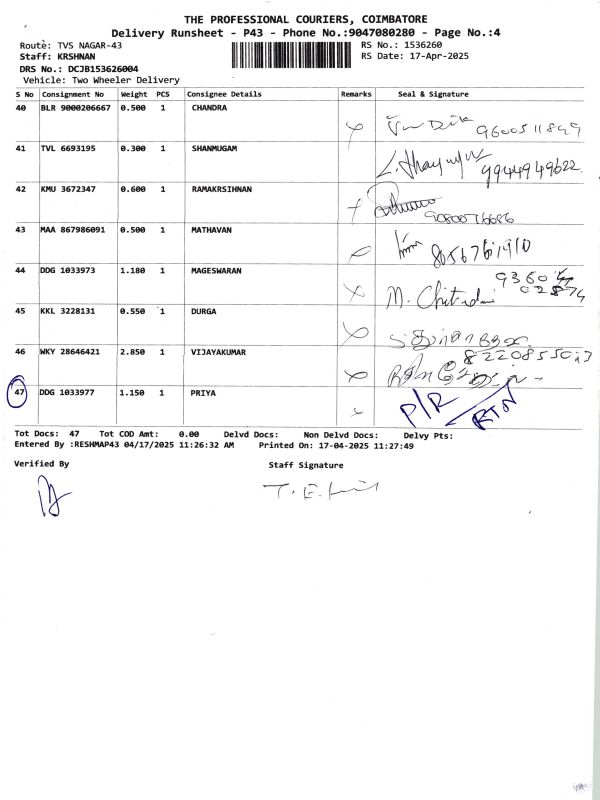 THE PROFESSIONAL COURIERS, COIMBATORE
Delivery Runsheet - P43 - Phone No.:9047080280 - Page No.:4
Route: TVS NAGAR-43 RS No.: 1536260
Staff: KRSHNAN RS Date: 17-Apr-2025
DRS No.: DCJB153626004
Vehicle: Two Wheeler Delivery
S No Consignment No Weight PCS Consignee Details Remarks Seal & Signature
40 BLR 9000206667 0.500 1 CHANDRA
9600511849
41 TVL 6693195 0.300 1 SHANMUGAM
9944949622
42 KMU 3672347 0.600 1 RAMAKRSIHNAN
9080076686
43 MAA 867986091 0.500 1 MATHAVAN
8056761910
44 DDG 1033973 1.180 1 MAGESWARAN
45 KKL 3228131 0.550 1 DURGA
46 WKY 28646421 2.850 1 VIJAYAKUMAR
47 DDG 1033977 1.150 1 PRIYA P/R RTN
Tot Docs: 47 Tot COD Amt: 0.00 Delvd Docs: Non Delvd Docs: Delvy Pts:
Entered By :RESHMAP43 04/17/2025 11:26:32 AM Printed On: 17-04-2025 11:27:49
Verified By Staff Signature